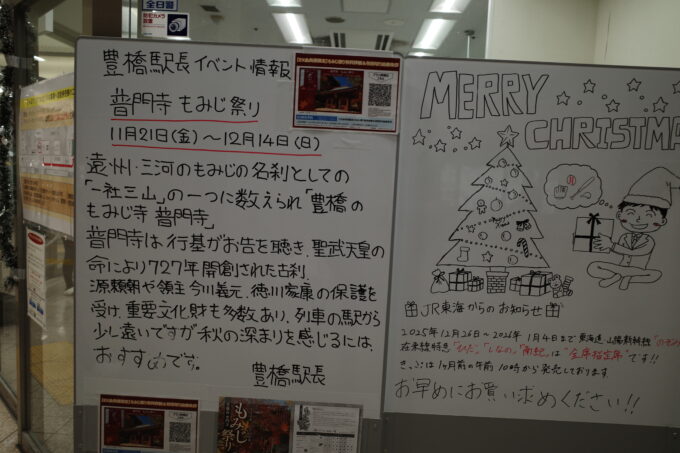 全日警
防犯カメラ
設置
豊橋駅長イベント情報
普門寺 もみじ祭り
11月21日(金)～12月14日(日)
遠州・三河のもみじの名刹としての
「一社三山」の一つに数えられ「豊橋の
もみじ寺 普門寺」
普門寺は行基がお告を聴き、聖武天皇の
命により727年開創された古刹。
源頼朝や領主今川義元、徳川家康の保護を
受け、重要文化財も多数あり、列車の駅から
少し遠いですが秋の深まりを感じるには、
おすすめです。
豊橋駅長
もみじ
祭り
MERRY
CHRISTMA
JR東海からのお知らせ
2025年12月26日～2026年1月4日まで東海道・山陽新幹線"のぞみ
在来線特急"ひだ"、"しなの"、"南紀"は"全席指定席"です!!
きっぷは1ヶ月前の午前10時から発売しております
お早めにお買い求めください!!